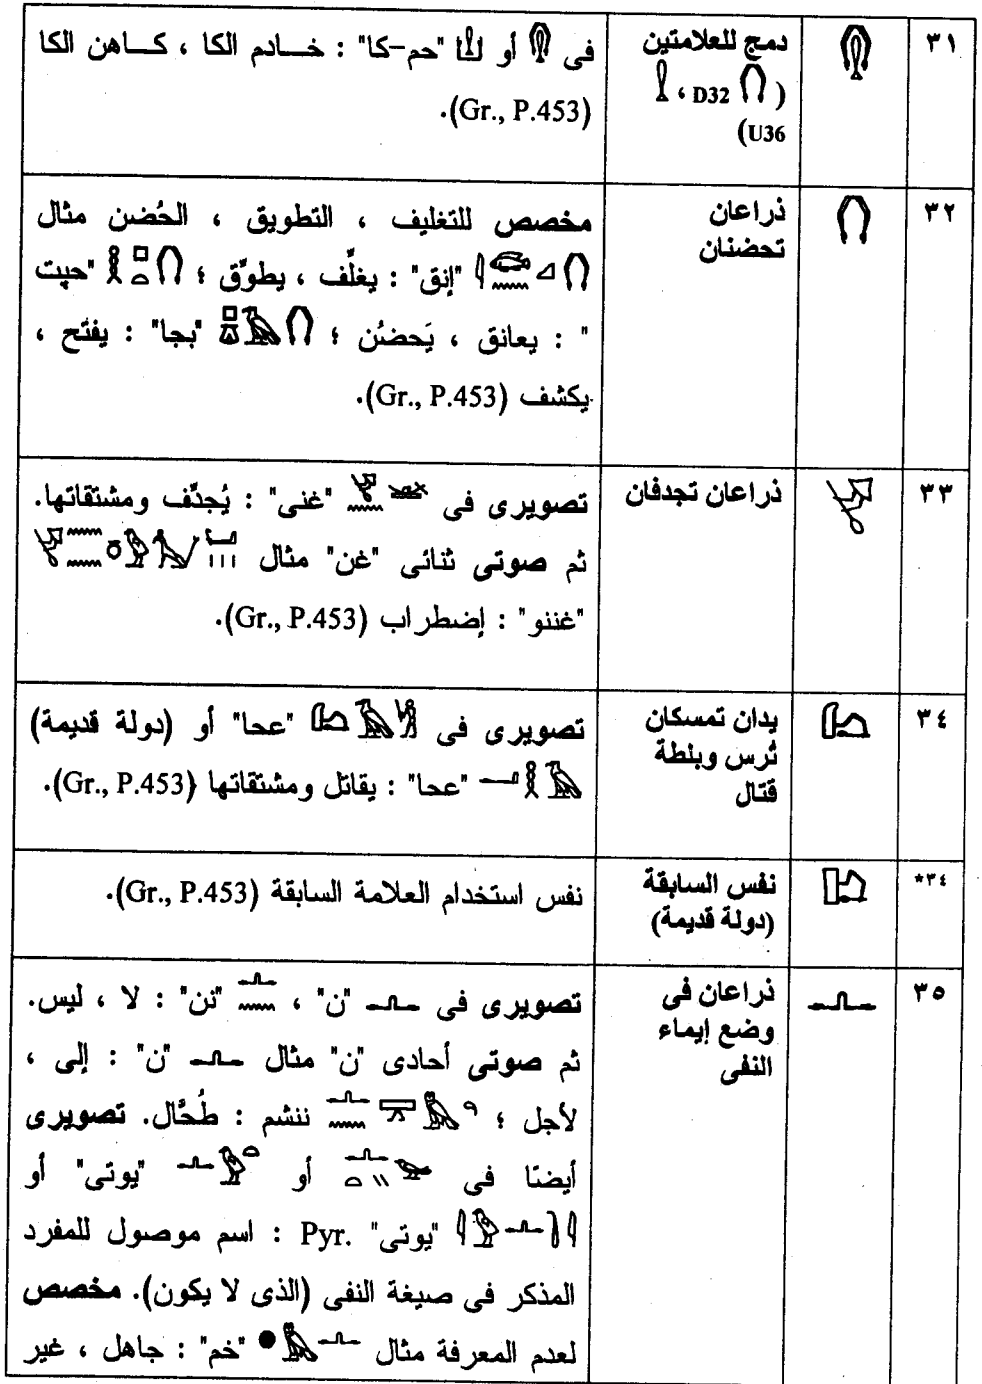 ٣١
دمج للعلامتين
( D32 ،
U36)
فى أو "حم-كا" : خادم الكا ، كاهن الكا
(Gr., P.453).
٣٢
ذراعان
تحضنان
مخصص للتغليف ، التطويق ، الحُضن مثال
"إنق" : يغلِّف ، يطوِّق ؛ "حپت
" : يعانق ، يَحضُن ؛ "پجا" : يفتح ،
يكشف (Gr., P.453).
٣٣
ذراعان تجدفان
تصويرى فى "غنى" : يُجدِّف ومشتقاتها.
ثم صوتى ثنائى "غن" مثال
"غننو" : إضطراب (Gr., P.453).
٣٤
يدان تمسكان
تُرس وبلطة
قتال
تصويرى فى "عحا" أو (دولة قديمة)
"عحا" : يقاتل ومشتقاتها (Gr., P.453).
٣٤*
نفس السابقة
(دولة قديمة)
نفس استخدام العلامة السابقة (Gr., P.453).
٣٥
ذراعان فى
وضع إيماء
النفى
تصويرى فى "ن" ، "نن" : لا ، ليس.
ثم صوتى أحادى "ن" مثال "ن" : إلى ،
لأجل ؛ ننشم : طُحَّال. تصويرى
أيضًا فى أو "يوتى" أو
"يوتى" Pyr. : اسم موصول للمفرد
المذكر فى صيغة النفى (الذى لا يكون). مخصص
لعدم المعرفة مثال "خم" : جاهل ، غير